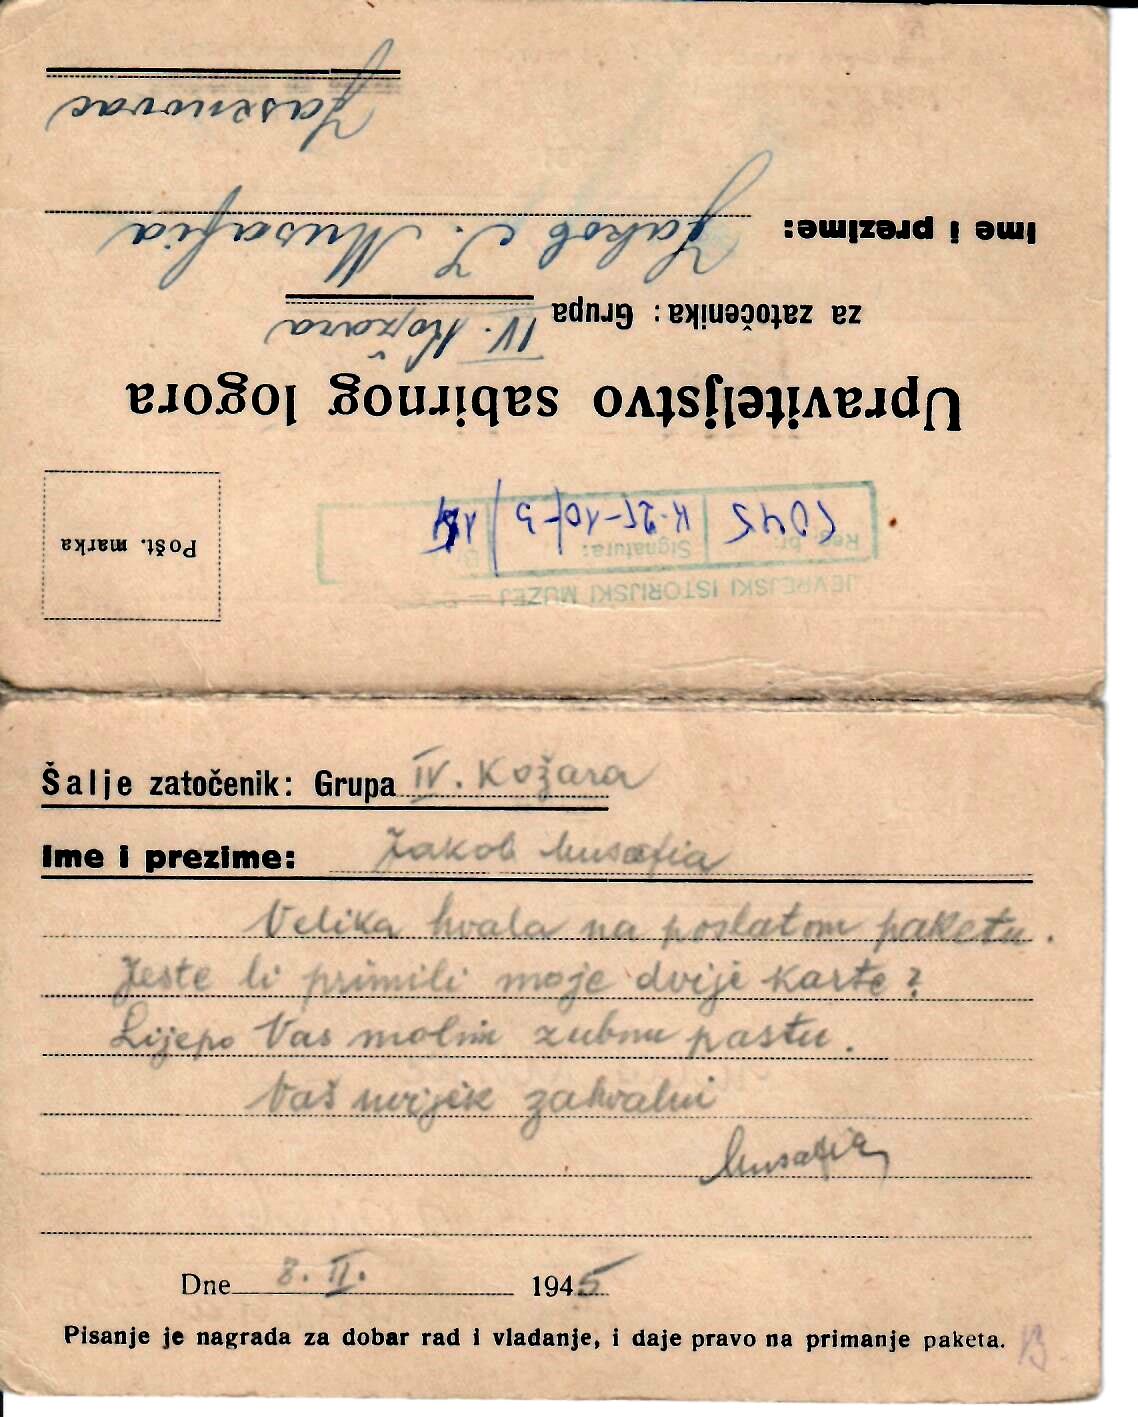 Upraviteljstvo sabirnog logora
za zatočenika: Grupa IV. Kožara
Ime i prezime: Jakob J. Musafia
Jasenovac
Pošt. marka
JEVREJSKI ISTORIJSKI MUZEJ —
Reg. br. Signatura:
5045 K.25-10-5/
Šalje zatočenik: Grupa IV. Kožara
Ime i prezime: Jakob Musafia
Velika hvala na poslatom paketu.
Jeste li primili moje dvije karte?
Lijepo Vas molim zubnu pastu.
Vaš uvijek zahvalni
Musafia
Dne 8. II. 1945
Pisanje je nagrada za dobar rad i vladanje, i daje pravo na primanje paketa.